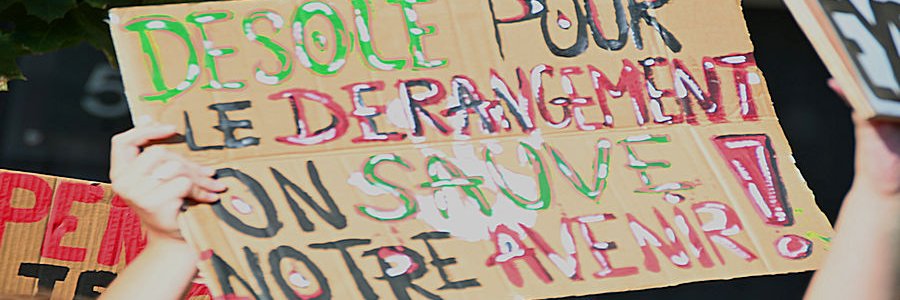 DESOLÉ POUR
LE DERANGEMENT
ON SAUVE
NOTRE AVENIR !
5
PEN